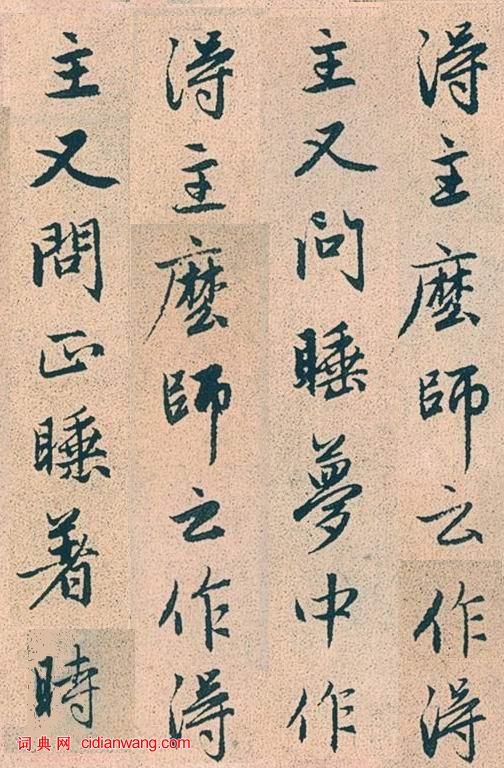 得主麼師云作得
主又問睡夢中作
得主麼師云作得
主又問正睡著時
词典网 cidianwang.com